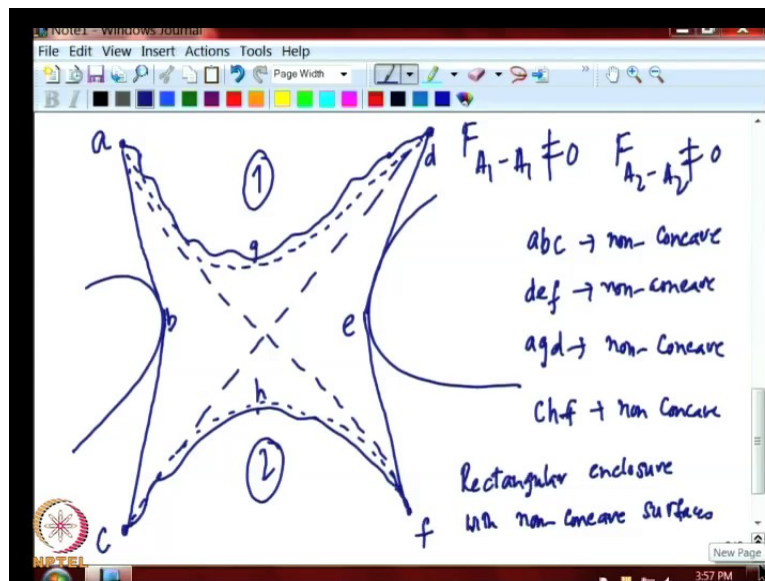 Note1 - Windows Journal
File Edit View Insert Actions Tools Help
Page Width
B I
a
1
d
g
b
e
h
2
c
f
F A1-A1 ≠0 F A2-A2 ≠0
abc → non-concave
def → non-concave
agd → non-concave
chf → non concave
Rectangular enclosure
with non-concave surfaces
NPTEL
New Page
3:57 PM